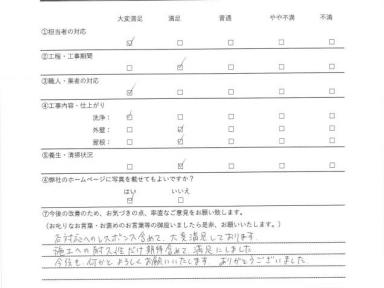 大変満足 満足 普通 やや不満 不満
①担当者の対応
②工程・工事期間
③職人・業者の対応
④工事内容・仕上がり
洗浄：
外壁：
屋根：
⑤養生・清掃状況
⑥弊社のホームページに写真を載せてもよいですか？
はい いいえ
⑦今後の改善のため、お気づきの点、率直なご意見をお願い致します。
（お叱りなお言葉・お褒めのお言葉等の御座いましたら是非、お願いいたします。）
対応へのレスポンス含めて、大変満足しております。
施工への耐久性だけ期待含めて、満足にしました
今後も、何かとよろしくお願いいたします ありがとうございました